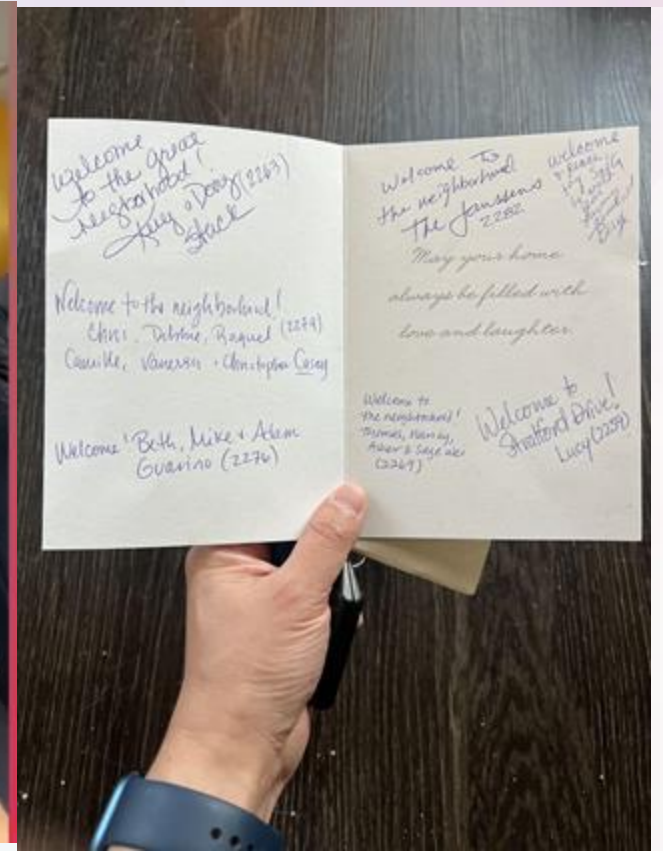 Welcome
to the great
neighborhood!
& Doug (2263)
Stack
Welcome to the neighborhood!
Chris, Debbie, Raquel (2279)
Camille, Vanessa + Christopher Casey
Welcome! Beth, Mike & Adam
Guarino (2276)
Welcome To
the neighborhood
The Janssens
2282
welcome
May your home
always be filled with
love and laughter.
Welcome to
the neighborhood!
Thomas, Nancy,
(2269)
Welcome to
Stratford Drive!
Lucy (2259)